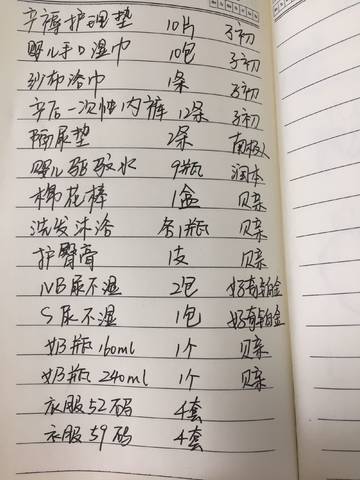 产褥护理垫 10片 子初
婴儿手口湿巾 10包 子初
纱布浴巾 1条 子初
产后一次性内裤 12条 子初
隔尿垫 2条 南极人
婴儿驱蚊水 9瓶 润本
棉花棒 1盒 贝亲
洗发沐浴 各1瓶 贝亲
护臀膏 1支 贝亲
NB尿不湿 2包 好奇铂金
S尿不湿 1包 好奇铂金
奶瓶160ml 1个 贝亲
奶瓶240ml 1个 贝亲
衣服52码 4套
衣服59码 4套